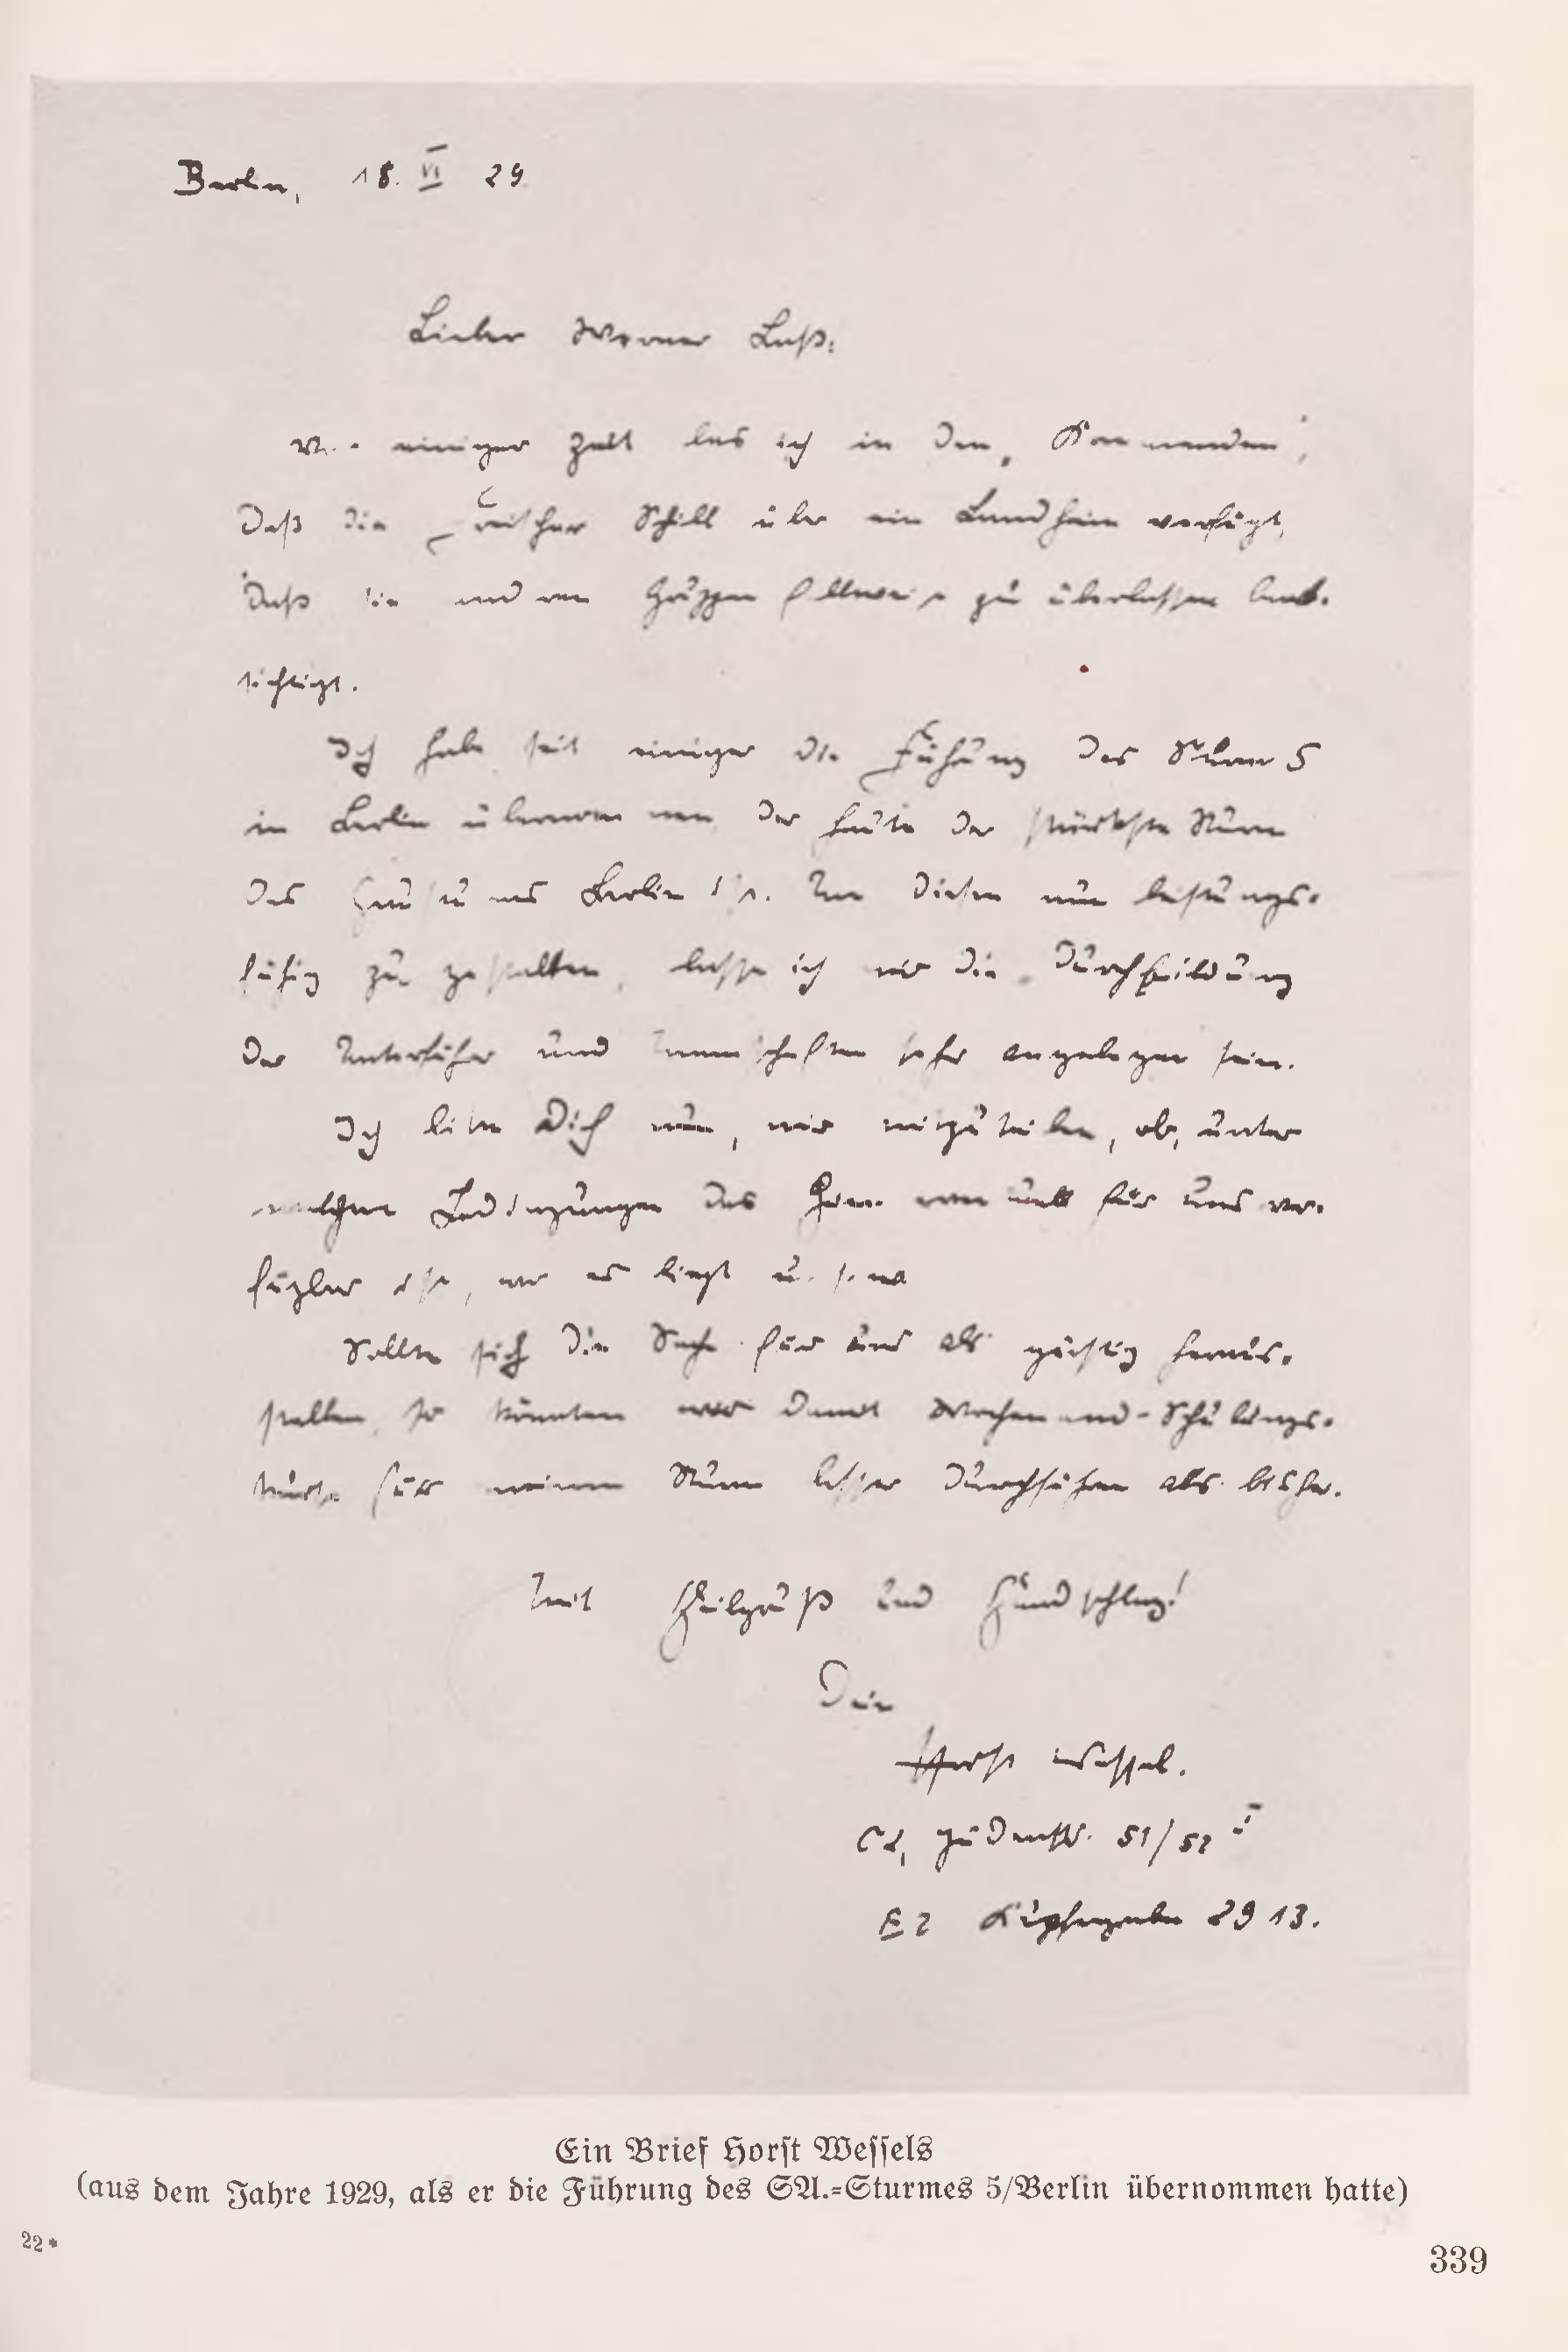 Berlin, 18. VI 29
Lieber Werner Laß:
Vor einiger Zeit las ich in den „Kommenden“,
daß die Freischar Schill über ein Landheim verfügt,
daß sie anderen Gruppen fallweise zu überlassen beab-
sichtigt.
Ich habe seit einiger die Führung des Sturm 5
in Berlin übernommen, der heute der stärkste Sturm
des Gausturmes Berlin ist. Um diesen nun leistungs-
fähig zu gestalten, lasse ich mir die Durchbildung
der Unterführer und Mannschaften sehr angelegen sein.
Ich bitte Dich nun, mir mitzuteilen, ob, unter
welchen Bedingungen das Heim eventuell für uns ver-
fügbar ist, wo es liegt u. s. w.
Sollte sich die Sache für uns als günstig heraus-
stellen, so könnten wir damit Wochenend-Schulungs-
kurse für meinen Sturm besser durchführen als bisher.
Mit Heilgruß und Handschlag!
Dein
Horst Wessel.
C2, Jüdenstr. 51/52 I
E2 Kupfergraben 2913.
Ein Brief Horst Wessels
(aus dem Jahre 1929, als er die Führung des SA.-Sturmes 5/Berlin übernommen hatte)
22*
339